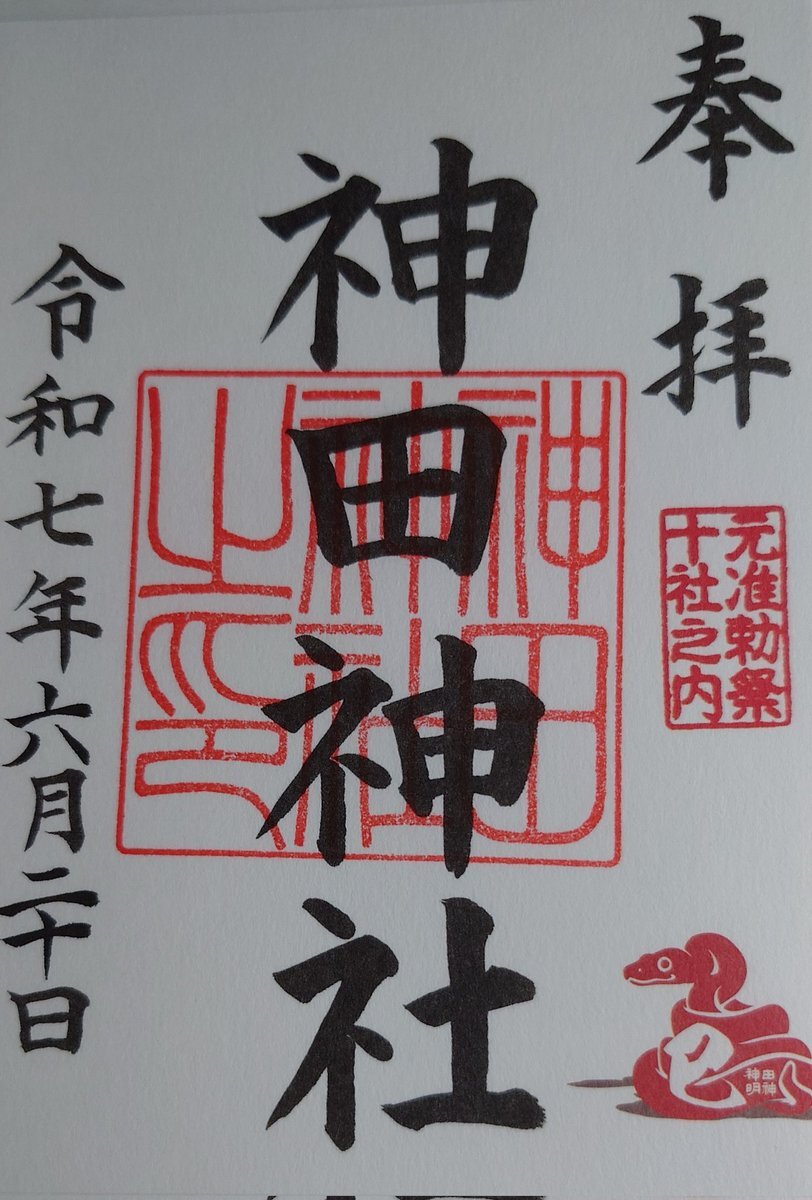 奉拝
元准勅祭
十社之内
神田神社
神田
神社
之印
令和七年六月二十日
巳
神田
明神